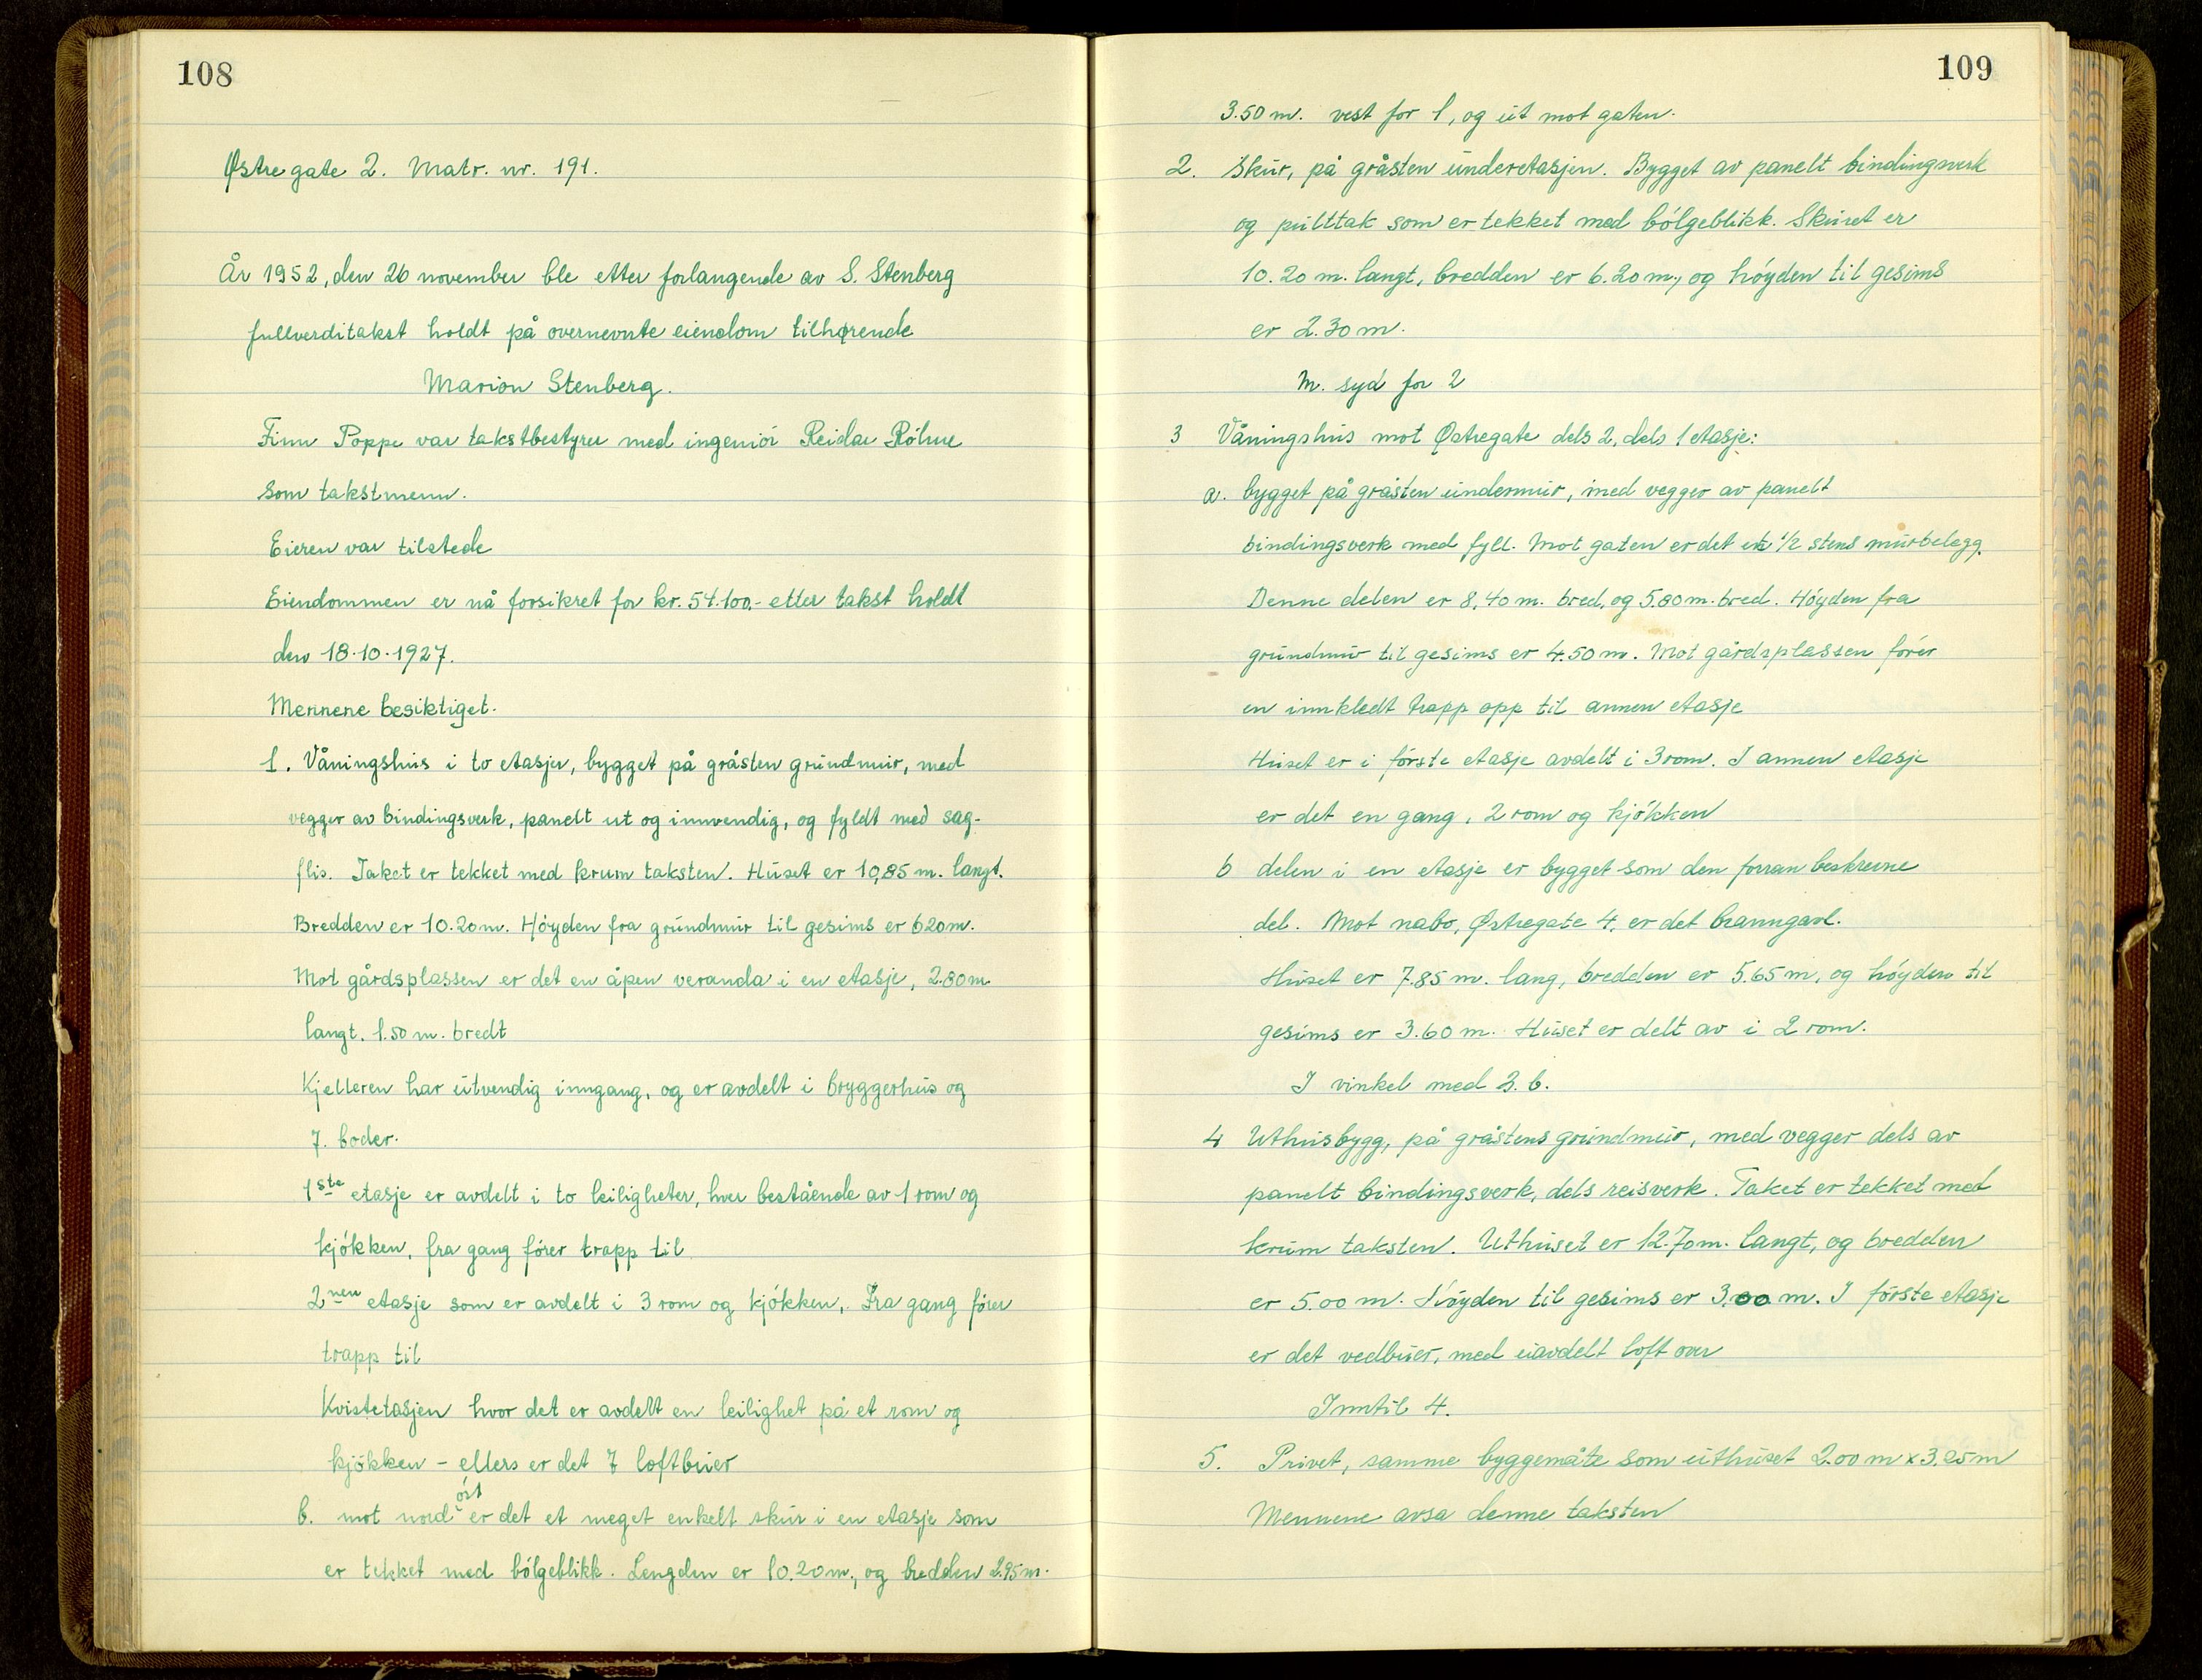 108
Østregate 2. Matr. nr. 191.
År 1952, den 26 november ble etter forlangende av S. Stenberg
fullverditakst holdt på overnevnte eiendom tilhørende
Marion Stenberg.
Finn Poppe var takstbestyrer med ingeniör Reidar Röhne
som takstmenn.
Eieren var tilstede
Eiendommen er nå forsikret for kr. 54.100,- etter takst holdt
den 18.10.1927.
Mennene besiktiget.
1. Våningshus i to etasjer, bygget på gråsten grundmur, med
vegger av bindingsverk, panelt ut og innvendig, og fyldt med sag-
flis. Taket er tekket med krum taksten. Huset er 10,85 m. langt.
Bredden er 10.20 m. Höyden fra grundmur til gesims er 620 m.
Mot gårdsplassen er det en åpen veranda i en etasje, 2.80 m
langt. 1.50 m. bredt
Kjelleren har utvendig inngang, og er avdelt i bryggerhus og
7. boder.
1ste etasje er avdelt i to leiligheter, hver bestående av 1 rom og
kjökken, fra gang förer trapp til
2nen etasje som er avdelt i 3 rom og kjökken. Fra gang förer
trapp til
Kvistetasjen hvor det er avdelt en leilighet på et rom og
kjökken - ellers er det 7 loftbuer
öst
b. mot nord er det et meget enkelt skur i en etasje som
er tekket med bölgeblikk. Lengden er 10.20 m., og bredden 2.95 m.
109
3.50 m. vest for 1, og ut mot gaten.
2. Skur, på gråsten underetasjen. Bygget av panelt bindingsverk
og pulttak som er tekket med bölgeblikk. Skuret er
10.20 m. langt, bredden er 6.20 m., og höyden til gesims
er 2.30 m.
M. syd for 2
3 Våningshus mot Østregate dels 2, dels 1 etasje:
a. bygget på gråsten undermur, med vegger av panelt
bindingsverk med fyll. Mot gaten er det en 1/2 stens murbelegg.
Denne delen er 8,40 m. bred, og 5.80 m. bred. Höyden fra
grundmur til gesims er 4.50 m. Mot gårdsplassen förer
en innkledt trapp opp til annen etasje
Huset er i förste etasje avdelt i 3 rom. I annen etasje
er det en gang, 2 rom og kjökken
b delen i en etasje er bygget som den forran beskrevne
del. Mot nabo, Østregate 4, er det branngavl.
Huset er 7.85 m. lang, bredden er 5.65 m, og höyden til
gesims er 3.60 m. Huset er delt av i 2 rom.
I vinkel med 3. b.
4 Uthusbygg, på gråstens grundmur, med vegger dels av
panelt bindingsverk, dels reisverk. Taket er tekket med
krum taksten. Uthuset er 12.70 m. langt, og bredden
er 5.00 m. Höyden til gesims er 3.00 m. I förste etasje
er det vedbuer, med uavdelt loft over
Inntil 4.
5. Privet, samme byggemåte som uthuset 2.00 m x 3.25 m
Mennene avsa denne taksten